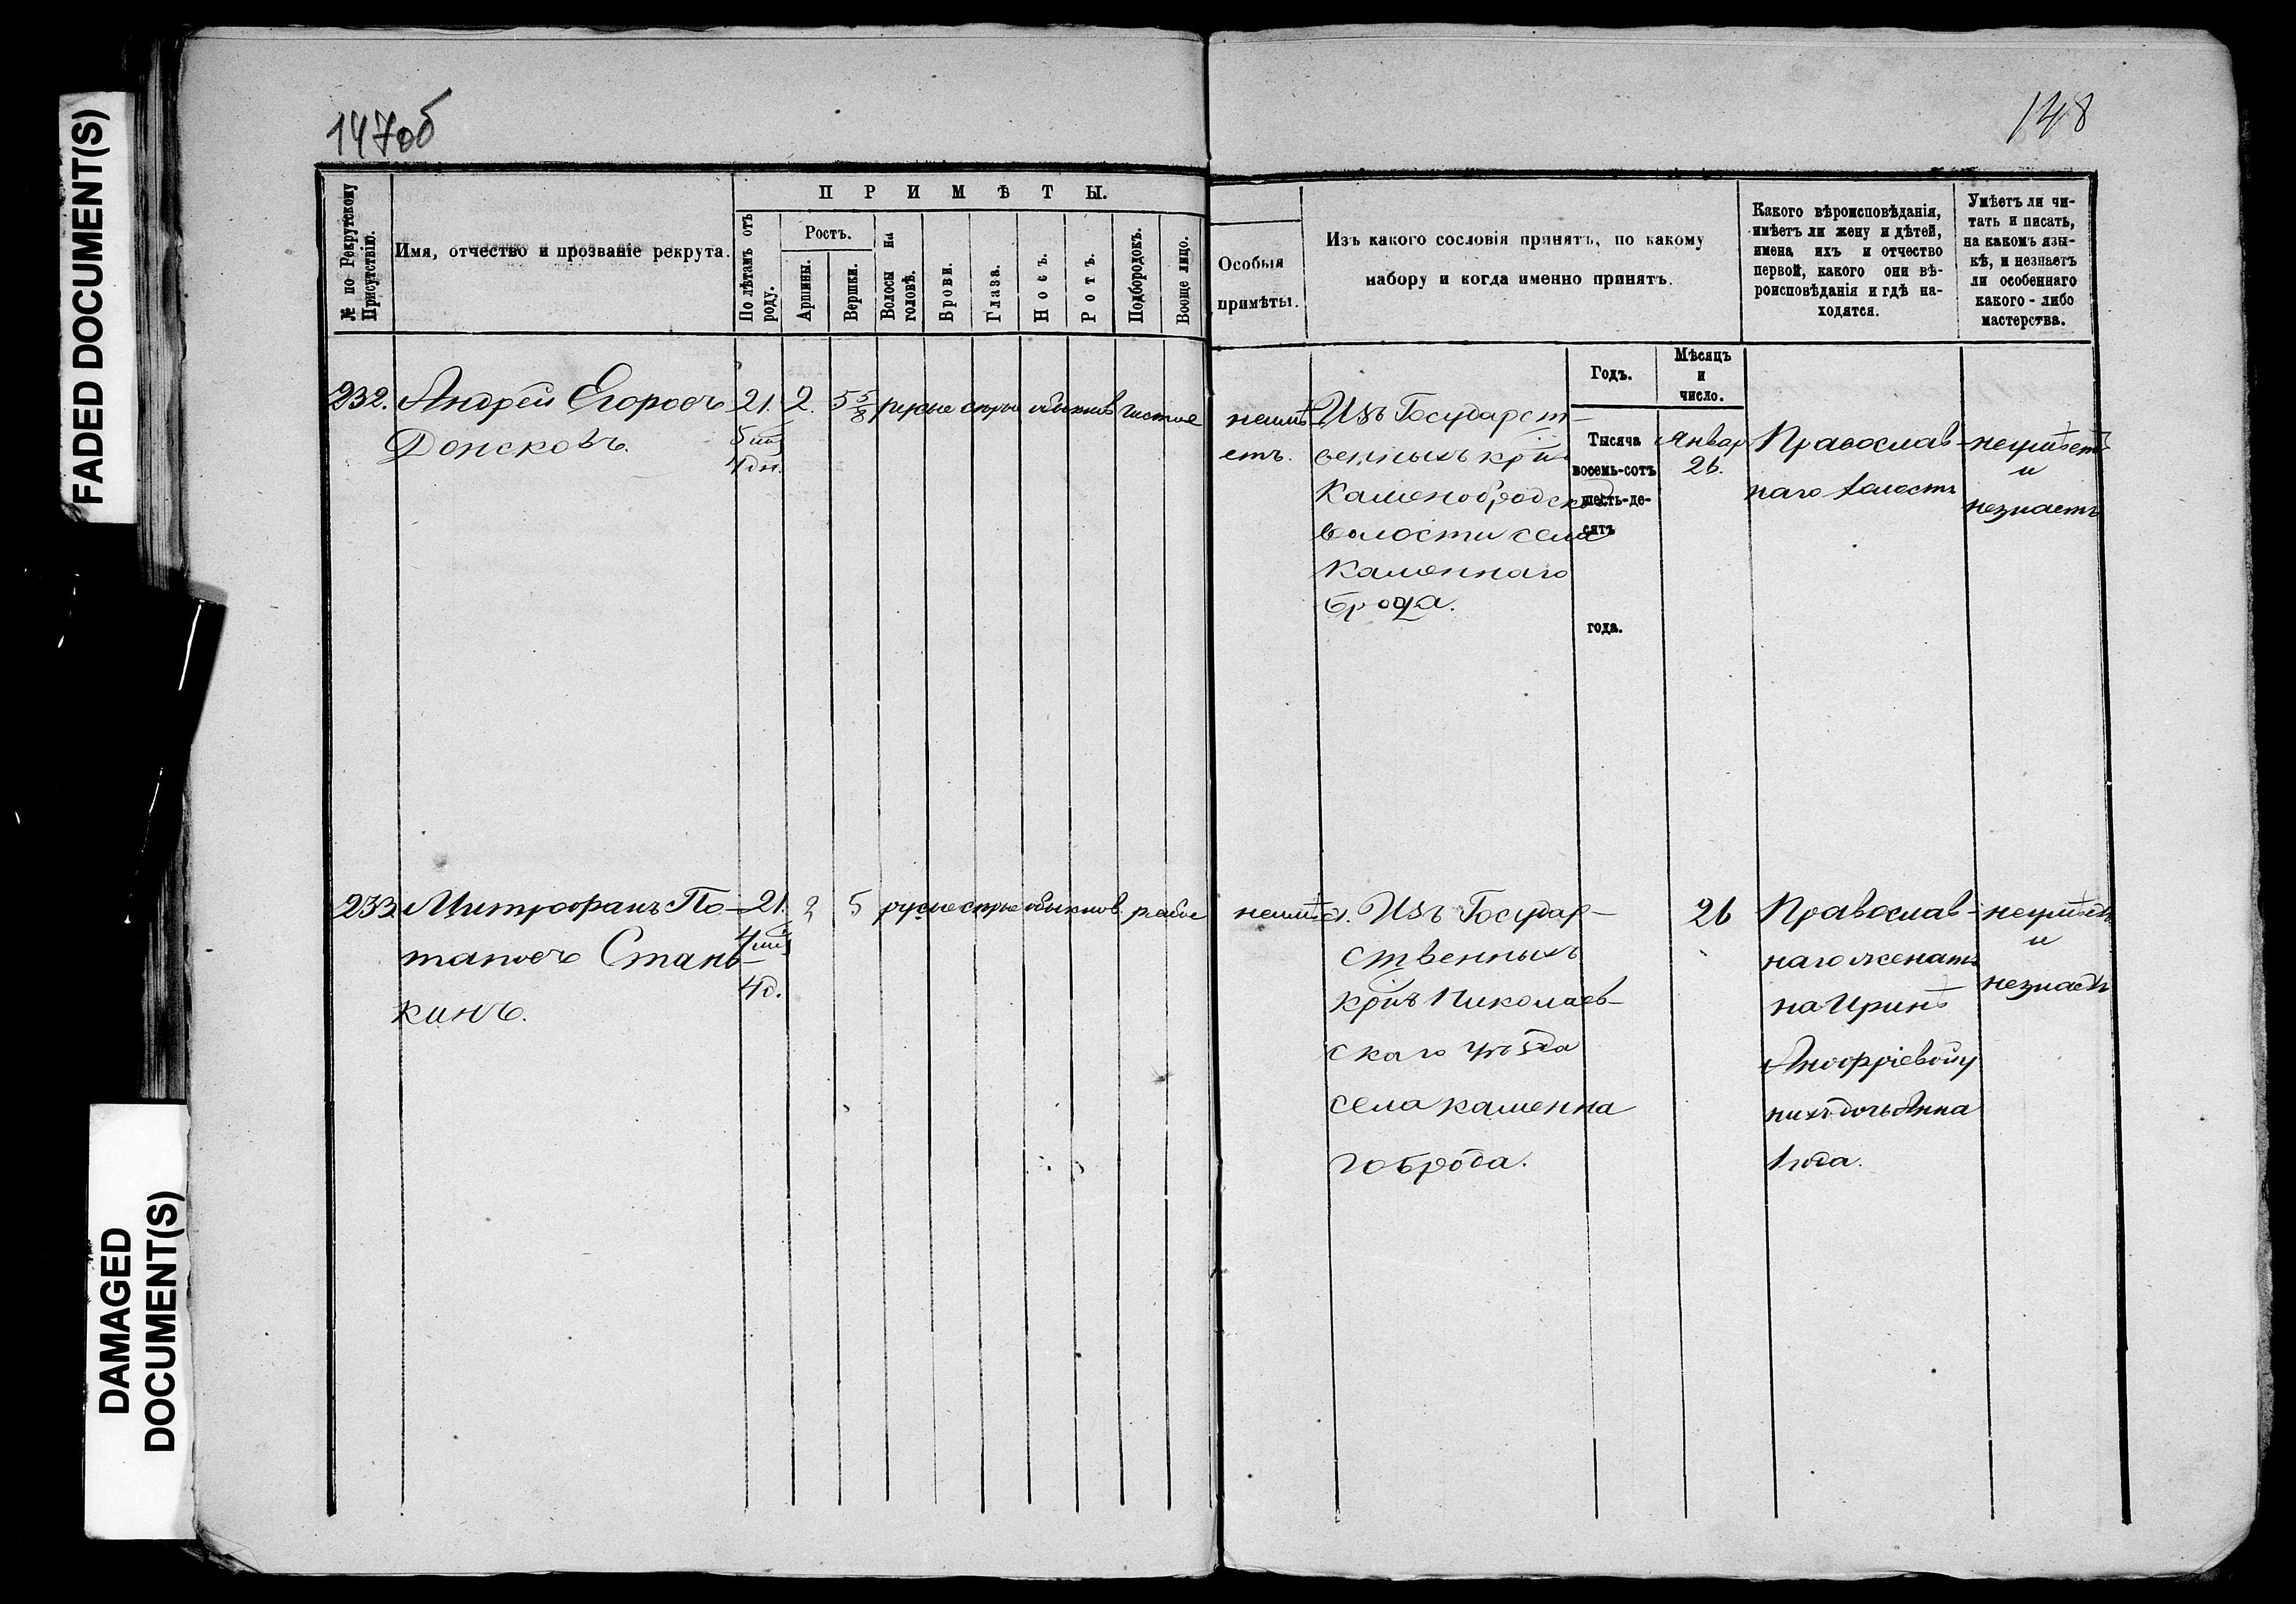 FADED DOCUMENT(S)
DAMAGED
DOCUMENT(S)
147об
148
№ по Рекрутскому
Присутствію.
Имя, отчество и прозваніе рекрута.
ПРИМѢТЫ.
По лѣтамъ отъ
роду.
Ростъ.
Аршины.
Вершки.
Волосы на
головѣ.
Брови.
Глаза.
Носъ.
Ротъ.
Подбородокъ.
Вооще лицо.
Особыя
примѣты.
Изъ какого сословія принятъ, по какому
набору и когда именно принятъ.
Какого вѣроисповѣданія,
имѣетъ ли жену и дѣтей,
имена ихъ и отчество
первой, какого они вѣ-
роисповѣданія и гдѣ на-
ходятся.
Умѣетъ ли чи-
тать и писать,
на какомъ язы-
кѣ, и незнаетъ
ли особеннаго
какого-либо
мастерства.
Годъ.
Мѣсяцъ
и
число.
232.
Андрей Егоровъ
Донсковъ.
21.
5 м
4 дн.
2.
5 5/8
русые
сѣрые
обыкнов
чистое
неимѣ-
етъ.
Изъ Государст-
венныхъ кр
Каменобродско
волости села
Каменнаго
брода.
Тысяча
восемь-сотъ
шесть-де-
сятъ
года.
Январ
26.
Православ-
наго холостъ
неумѣетъ
и
незнаетъ
233
Митрофанъ По-
таповъ Стань-
кинъ.
21.
4 м
4 д.
2
5
русые
сѣрые
обыкнов.
рябое
неимѣе.
Изъ Государ-
ственныхъ
кр Николаев-
скаго уѣзда
села каменна
го брода.
26
Православ-
наго женатъ
на Иринѣ
Аноффріевой у
нихъ дочь Анна
1 года.
неумѣетъ
и
незнаетъ